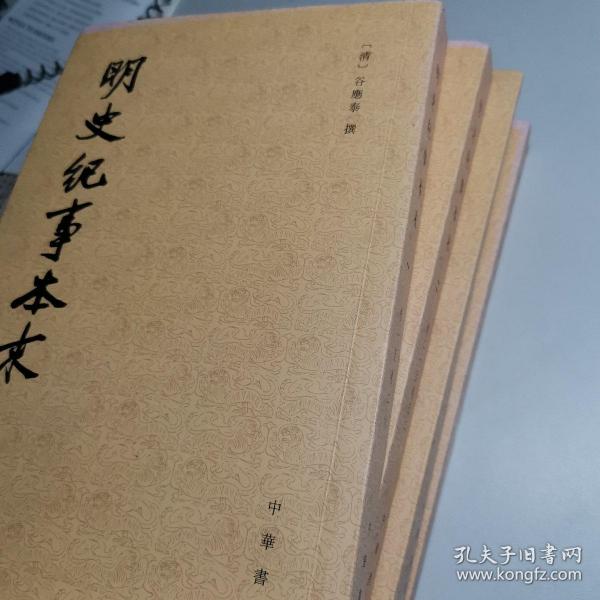 明史纪事本末
〔清〕谷應泰 撰
中華書
孔夫子旧书网
www.kongfz.com